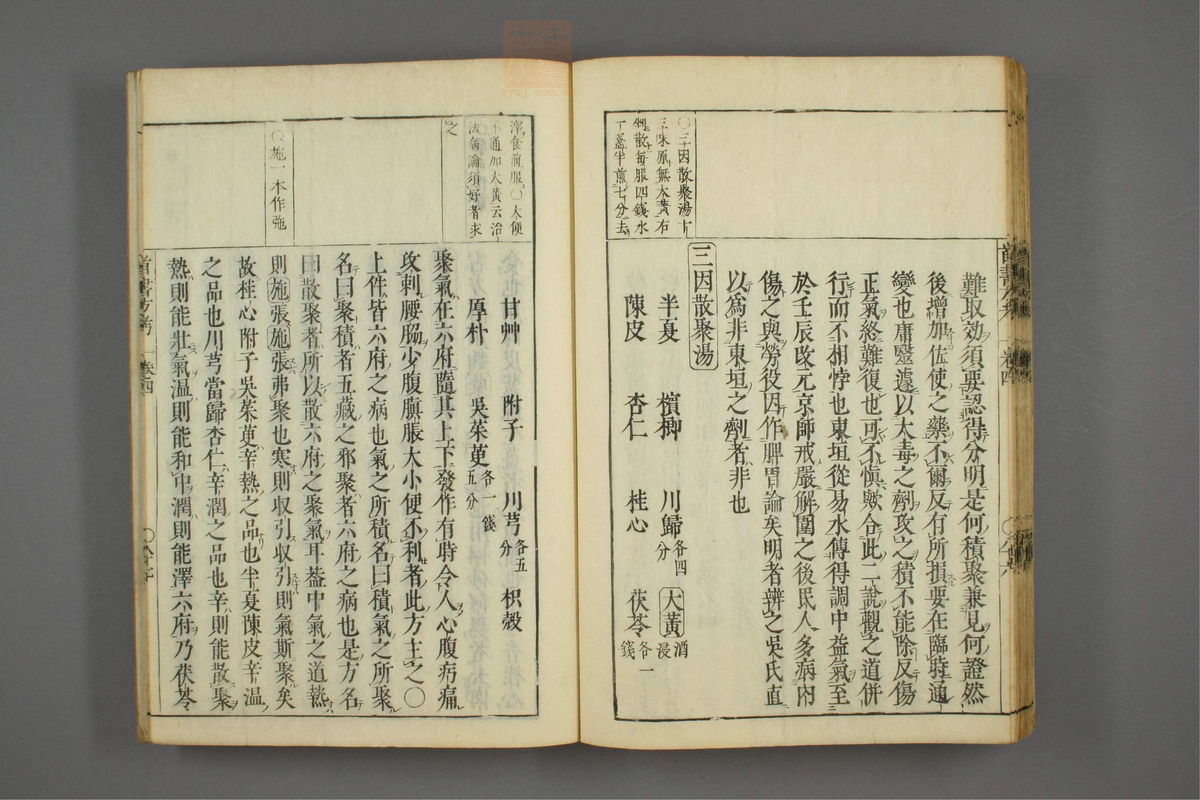 〇三因散聚湯方
三味原無大黃右
剉散每服四錢水
一盞半煎七分去
難取効須要認得分明是何積聚兼見何證然
後增加佐使之藥不爾反有所損要在臨時通
變也庸醫遽以大毒之劑攻之積不能除反傷
正氣終難復也可不慎歟合此二說觀之道併
行而不相悖也東垣從易水傳得調中益氣至
於壬辰改元京師戒嚴解圍之後民人多病內
傷之與勞役因作脾胃論矣明者辨之吳氏直
以爲非東垣之劑者非也
三因散聚湯
半夏 檳榔 川歸各四分 大黃酒浸
陳皮 杏仁 桂心 茯苓各一錢
滓食前服〇大便
不通加大黃云治
之
甘艸 附子 川芎各五分 枳殼
厚朴 吳茱萸各一錢五分
聚氣在六府隨其上下發作有時令人心腹疠痛
攻刺腰脇少腹䐜脹大小便不利者此方主之〇
上件皆六府之病也氣之所積名曰積氣之所聚
名曰聚積者五藏之邪聚者六府之病也是方名
曰散聚者所以散六府之聚氣耳蓋中氣之道熱
則施張施張弗聚也寒則收引收引則氣斯聚矣
〇施一本作弛
故桂心附子吳茱萸辛熱之品也半夏陳皮辛溫
之品也川芎當歸杏仁辛潤之品也辛則能散聚
熱則能壯氣溫則能和中潤則能澤六府乃茯苓
卷四